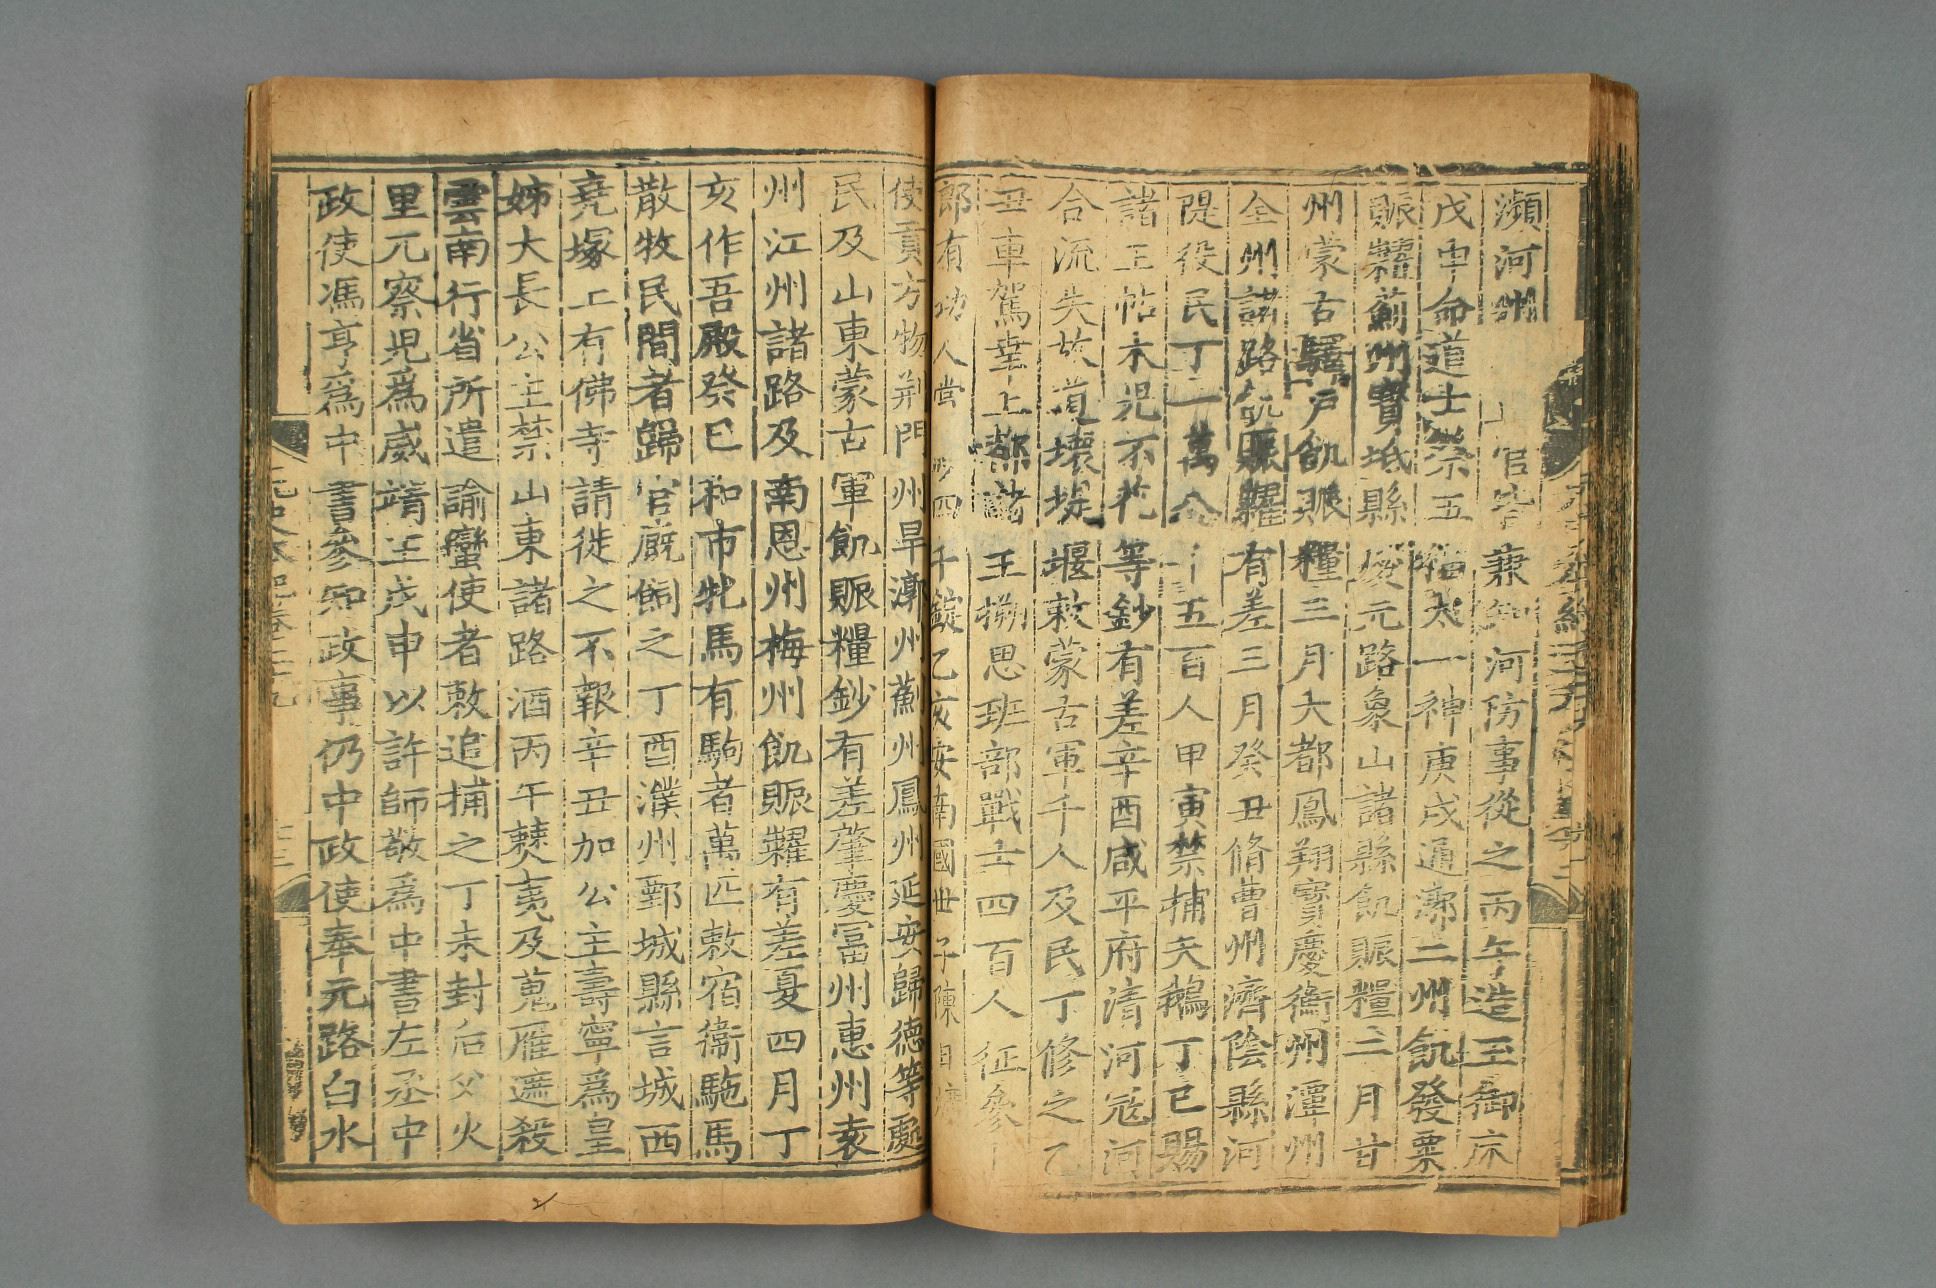 瀕河州官皆兼知河防事從之丙午造玉御床
戊申命道士祭五福太一神庚戌通漷二州飢發粟
賑糶薊州寶坻縣慶元路象山諸縣飢賑糧二月甘
州蒙古驛戶飢賑糧三月大都鳳翔寶慶衡州潭州
全州諸路飢賑糶有差三月癸丑脩曹州濟陰縣河
隄役民丁一萬八千五百人甲寅禁捕天鵝丁巳賜
諸王帖木兒不花等鈔有差辛酉咸平府清河寇河
合流失故道壞堤堰敕蒙古軍千人及民丁修之乙
丑車駕幸上都諸王搠思班部戰士四百人征參卜
郎有功人賞鈔四千錠乙亥安南國世子陳日㷃
使貢方物荊門州旱漷州薊州鳳州延安歸德等處
民及山東蒙古軍飢賑糧鈔有差肇慶富州惠州袁
州江州諸路及南恩州梅州飢賑糶有差夏四月丁
亥作吾殿癸巳和市牝馬有駒者萬匹敕宿衛駞馬
散牧民間者歸官廐飼之丁酉濮州鄄城縣言城西
堯塚上有佛寺請徙之不報辛丑加公主壽寧爲皇
姊大長公主禁山東諸路酒丙午僰夷及蒐雁遮殺
雲南行省所遣諭蠻使者敕追捕之丁未封后父火
里兀察兒爲威靖王戊申以許師敬爲中書左丞中
政使馮亨爲中書參知政事仍中政使奉元路白水
元史本紀卷二十九
十三